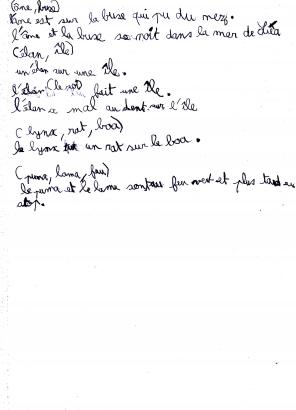 (âne, buse)
l'âne est sur la buse qui pu du nez.
l'âne et la buse se noit dans la mer de
(élan, île)
un élan sur une île.
l'élan fait une île.
l'élan a mal au dent sur l'île
(lynx, rat, boa)
le lynx un rat sur le boa.
(puma, lama, feu)
le puma et le lama sont au feu vert et plus tard au
stop.